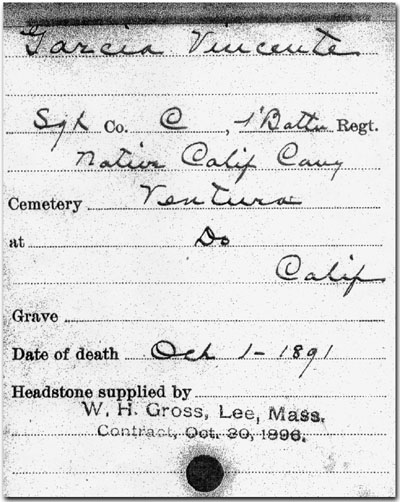 Garcia Vincente
Sgt Co. C, 1' Battn Regt.
Native Calif Cavy
Cemetery Ventura
at Do
Calif
Grave
Date of death Oct 1-1891
Headstone supplied by
W. H. Gross, Lee, Mass.
Contract, Oct. 30, 1896.